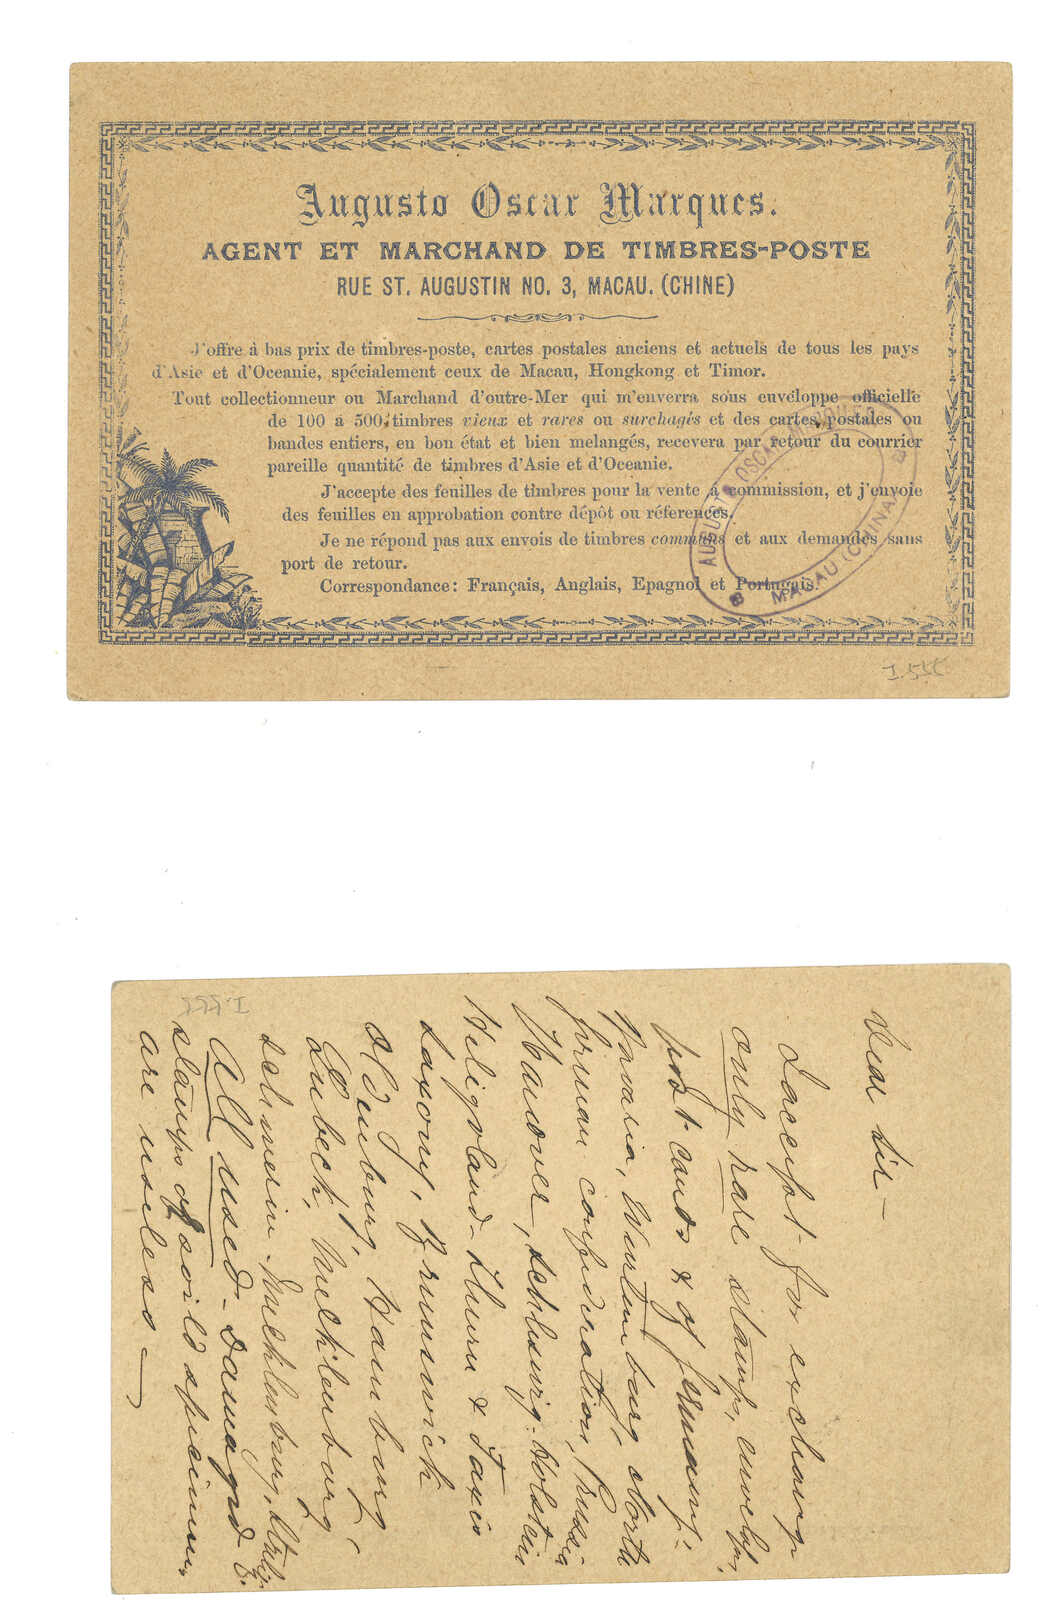 Augusto Oscar Marques.
AGENT ET MARCHAND DE TIMBRES-POSTE
RUE ST. AUGUSTIN NO. 3, MACAU. (CHINE)
J'offre à bas prix de timbres-poste, cartes postales anciens et actuels de tous les pays
d'Asie et d'Oceanie, spécialement ceux de Macau, Hongkong et Timor.
Tout collectionneur ou Marchand d'outre-Mer qui m'enverra sous euveloppe officielle
de 100 à 500 timbres vieux et rares ou surchagés et des cartes postales ou
bandes entiers, en bon état et bien melangés, recevera par retour du courrier
pareille quantité de timbres d'Asie et d'Oceanie.
J'accepte des feuilles de timbres pour la vente à commission, et j'envoie
des feuilles en approbation contre dépôt ou réferences.
Je ne répond pas aux envois de timbres communs et aux demandes sans
port de retour.
Correspondance: Français, Anglais, Epagnol et Portugais.
AUGUSTO OSCAR MARQUES
MACAU (CHINA)
I.555
I.555
Dear Sir –
I accept for exchange
only rare stamps, envelops,
post-cards & of Germany:
Bavaria, Wurtemburg, North
German confederation, Prussia
Hanover, Schleswig-Holstein
Heligoland – Thurn & Taxis
Saxony, Brunswick
Oldenburg, Hamburg,
Lubeck, Mecklenburg
Schwerin Mecklenburg, Strelitz.
All used – Damaged &
stamps of soild specimens
are useless –